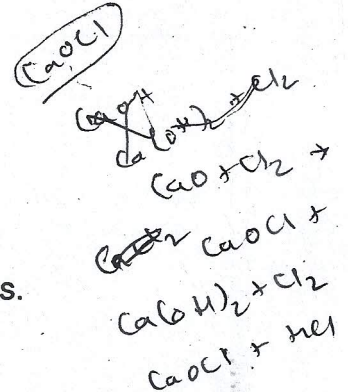 CaOCl
Ca(OH)2 + Cl2
CaO + Cl2 +
CaOCl +
s.
Ca(OH)2 + Cl2
CaOCl + HCl